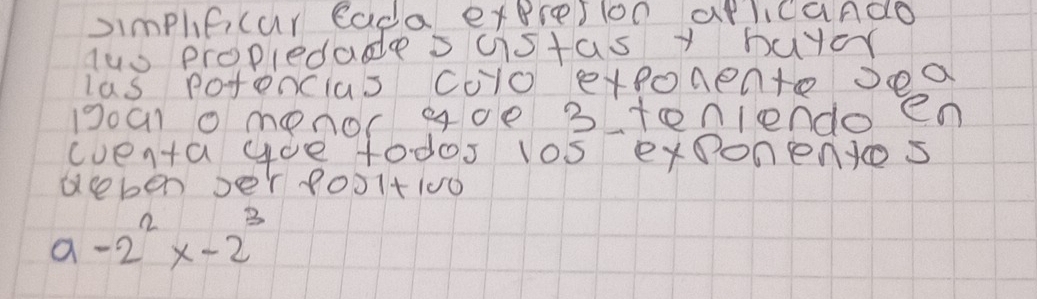 simplificar cada expresion aplicando
las propiedades vistas y hayar
las potencias cuyo exponente sea
igoal o menor que 3 teniendo en
cuenta que todos los exponentes
deben ser positivo
a -2² x -2³